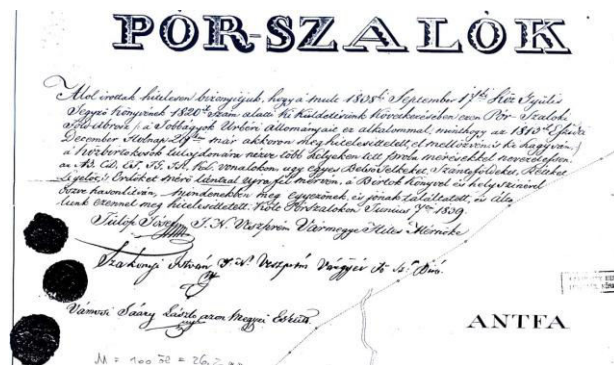 PÓR-SZALÓK
Alol irottak hitelesen bizonyitjuk, hogy a mult 1838ik September 17kén Köz Gyülés
Jegyző Könyvének 1820ik szám alatti Ki Küldetésünk Következésében ezen Pór Szaloki
Földabrosz a Jobbágyok Urbéri állományai ez alkalommal, minthogy az 1813ik Eszt.
December Holnap 29én már akkoron meg hitelesittetett, el mellőzvén is ki hagyván
a Közbirtokosok tulajdonára nézve több helyeken tett próba mérésekkel nevezetesen
az AB. CD. EF. vonalokom ugy egyes Belső Telkeket, Szántóföldeket, Réteket
Legelőt, Erdőket mérő lánczal ujra fel mérvén, a Birtok Könyvel és hely szinével
össze hasonlitván, mindenekben meg egyezőnek, és jónak találtatott, és álta
lunk ezennel meg hitelesittetett. Költ Pórszalokon Junius 7én 1839.
Fülöp József T. N. Veszprém Vármegye Hites Mérnöke
Szakonyi István T. N. Veszprém Várgyei Fő Sz. Biró
Vámosi Sááry László azon Megyei Esküdt
ANTFA
M = 100 öl =